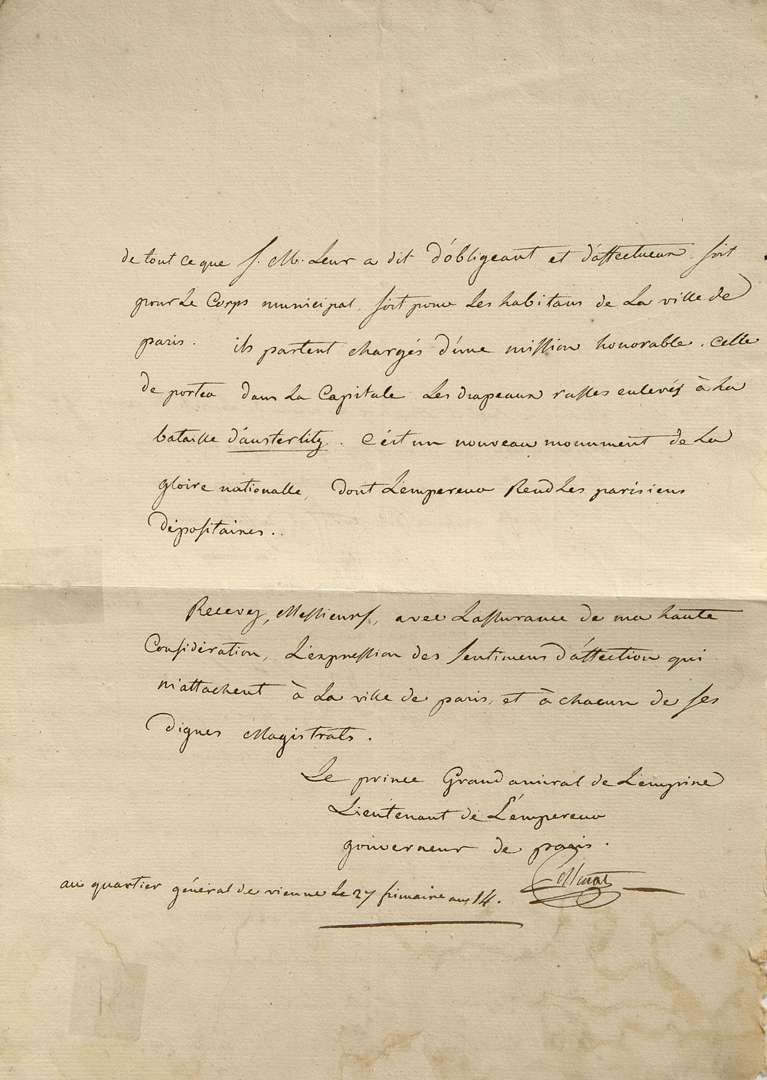 de tout ce que S. M. Leur a dit d'obligeant et d'affectueux, soit
pour Le Corps municipal, soit pour Les habitans de La ville de
paris. ils partent chargés d'une mission honorable. Celle
de porter dans La Capitale Les drapeaux russes enlevés à La
bataille d'austerlitz. C'est un nouveau monument de La
gloire nationalle, dont L'empereur Rend Les parisiens
dépositaires..
Recevez, Messieurs, avec L'assurance de ma haute
Considération, L'expression des Sentimens d'affection qui
m'attachent à La ville de paris, et à chacun de ses
dignes Magistrats.
Le prince Grand amiral de L'empire
Lieutenant de L'empereur
gouverneur de paris.
Murat
au quartier général de vienne Le 27 frimaire an 14.